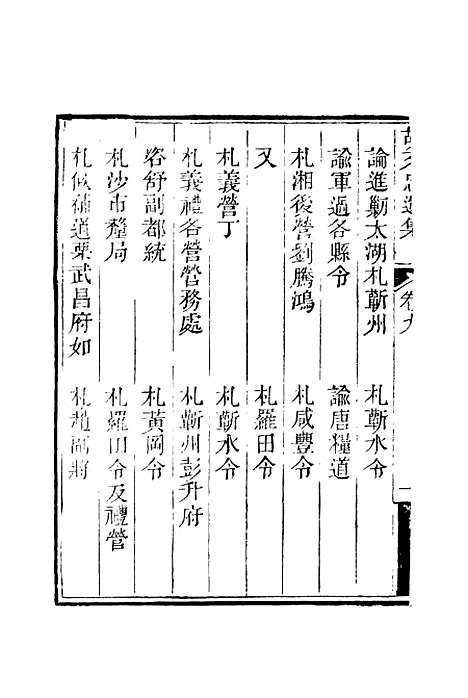 胡文忠遺集 卷九 一
諭進勦太湖札蘄州 札蘄水令
諭軍過各縣令 諭唐糧道
札湘後營劉騰鴻 札咸豐令
又 札羅田令
札義營丁 札蘄水令
札義禮各營營務處 札蘄州彭升府
咨舒副都統 札黃岡令
札沙市釐局 札羅田令及禮營
札候補道栗武昌府如 札趙